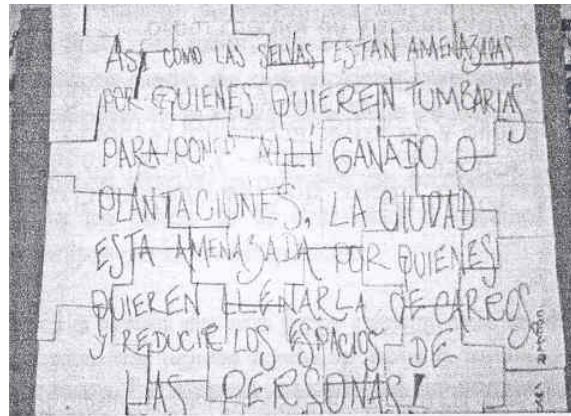 ASI COMO LAS SELVAS ESTÁN AMENAZADAS
POR QUIENES QUIEREN TUMBARLAS
PARA PONER ALLÍ GANADO O
PLANTACIONES, LA CIUDAD
ESTA AMENAZADA POR QUIENES
QUIEREN LLENARLA DE CARROS
Y REDUCIR LOS ESPACIOS DE
LAS PERSONAS!